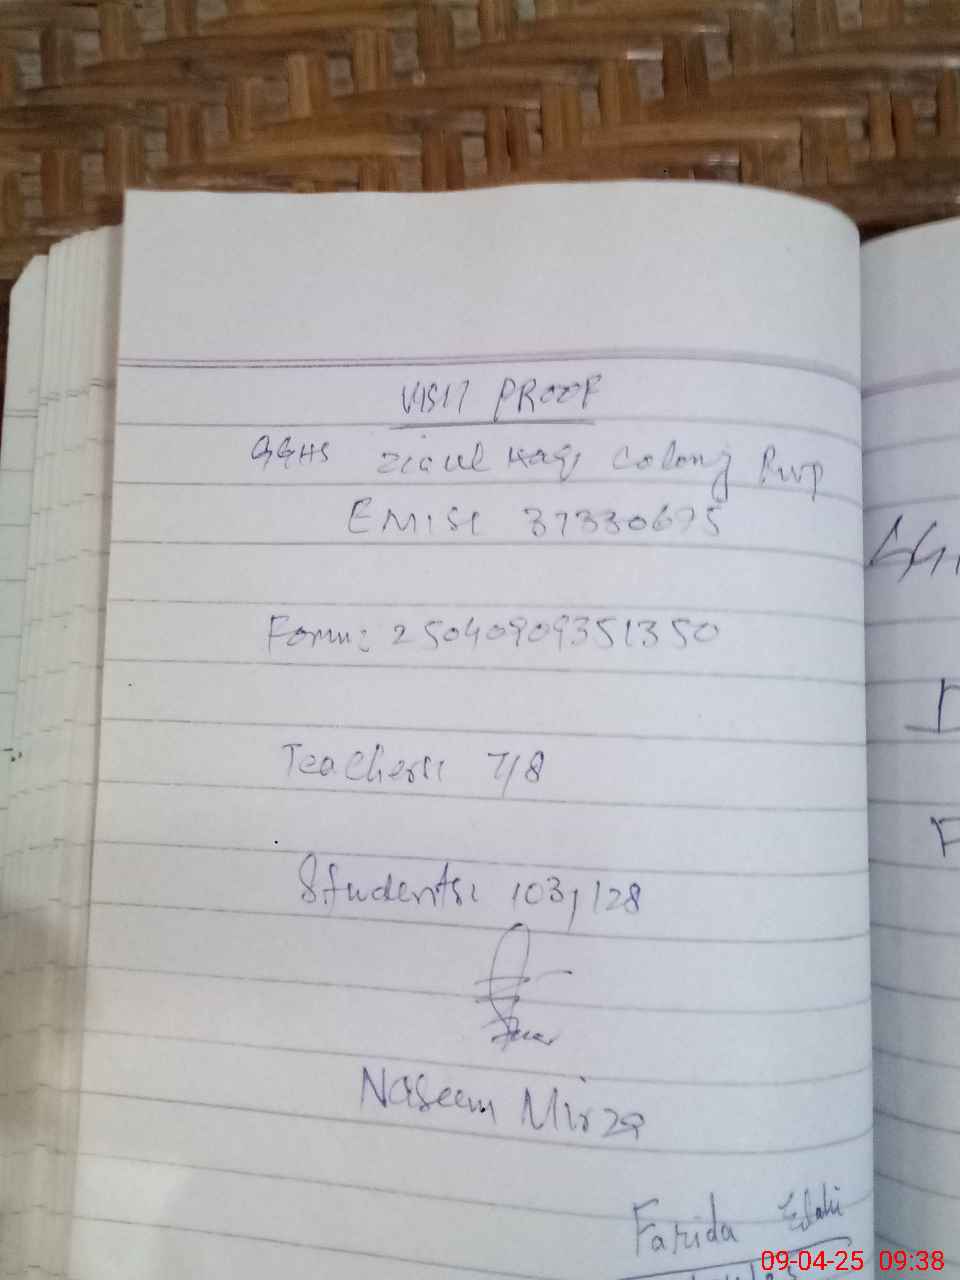 VISIT PROOF
GGHS Ziaul Haq Colony Rwp
EMIS: 37330675
Form: 25040909351350
Teachers: 7/8
Students: 103/128
Naseem Mirza
Farida Elahi
09-04-25 09:38